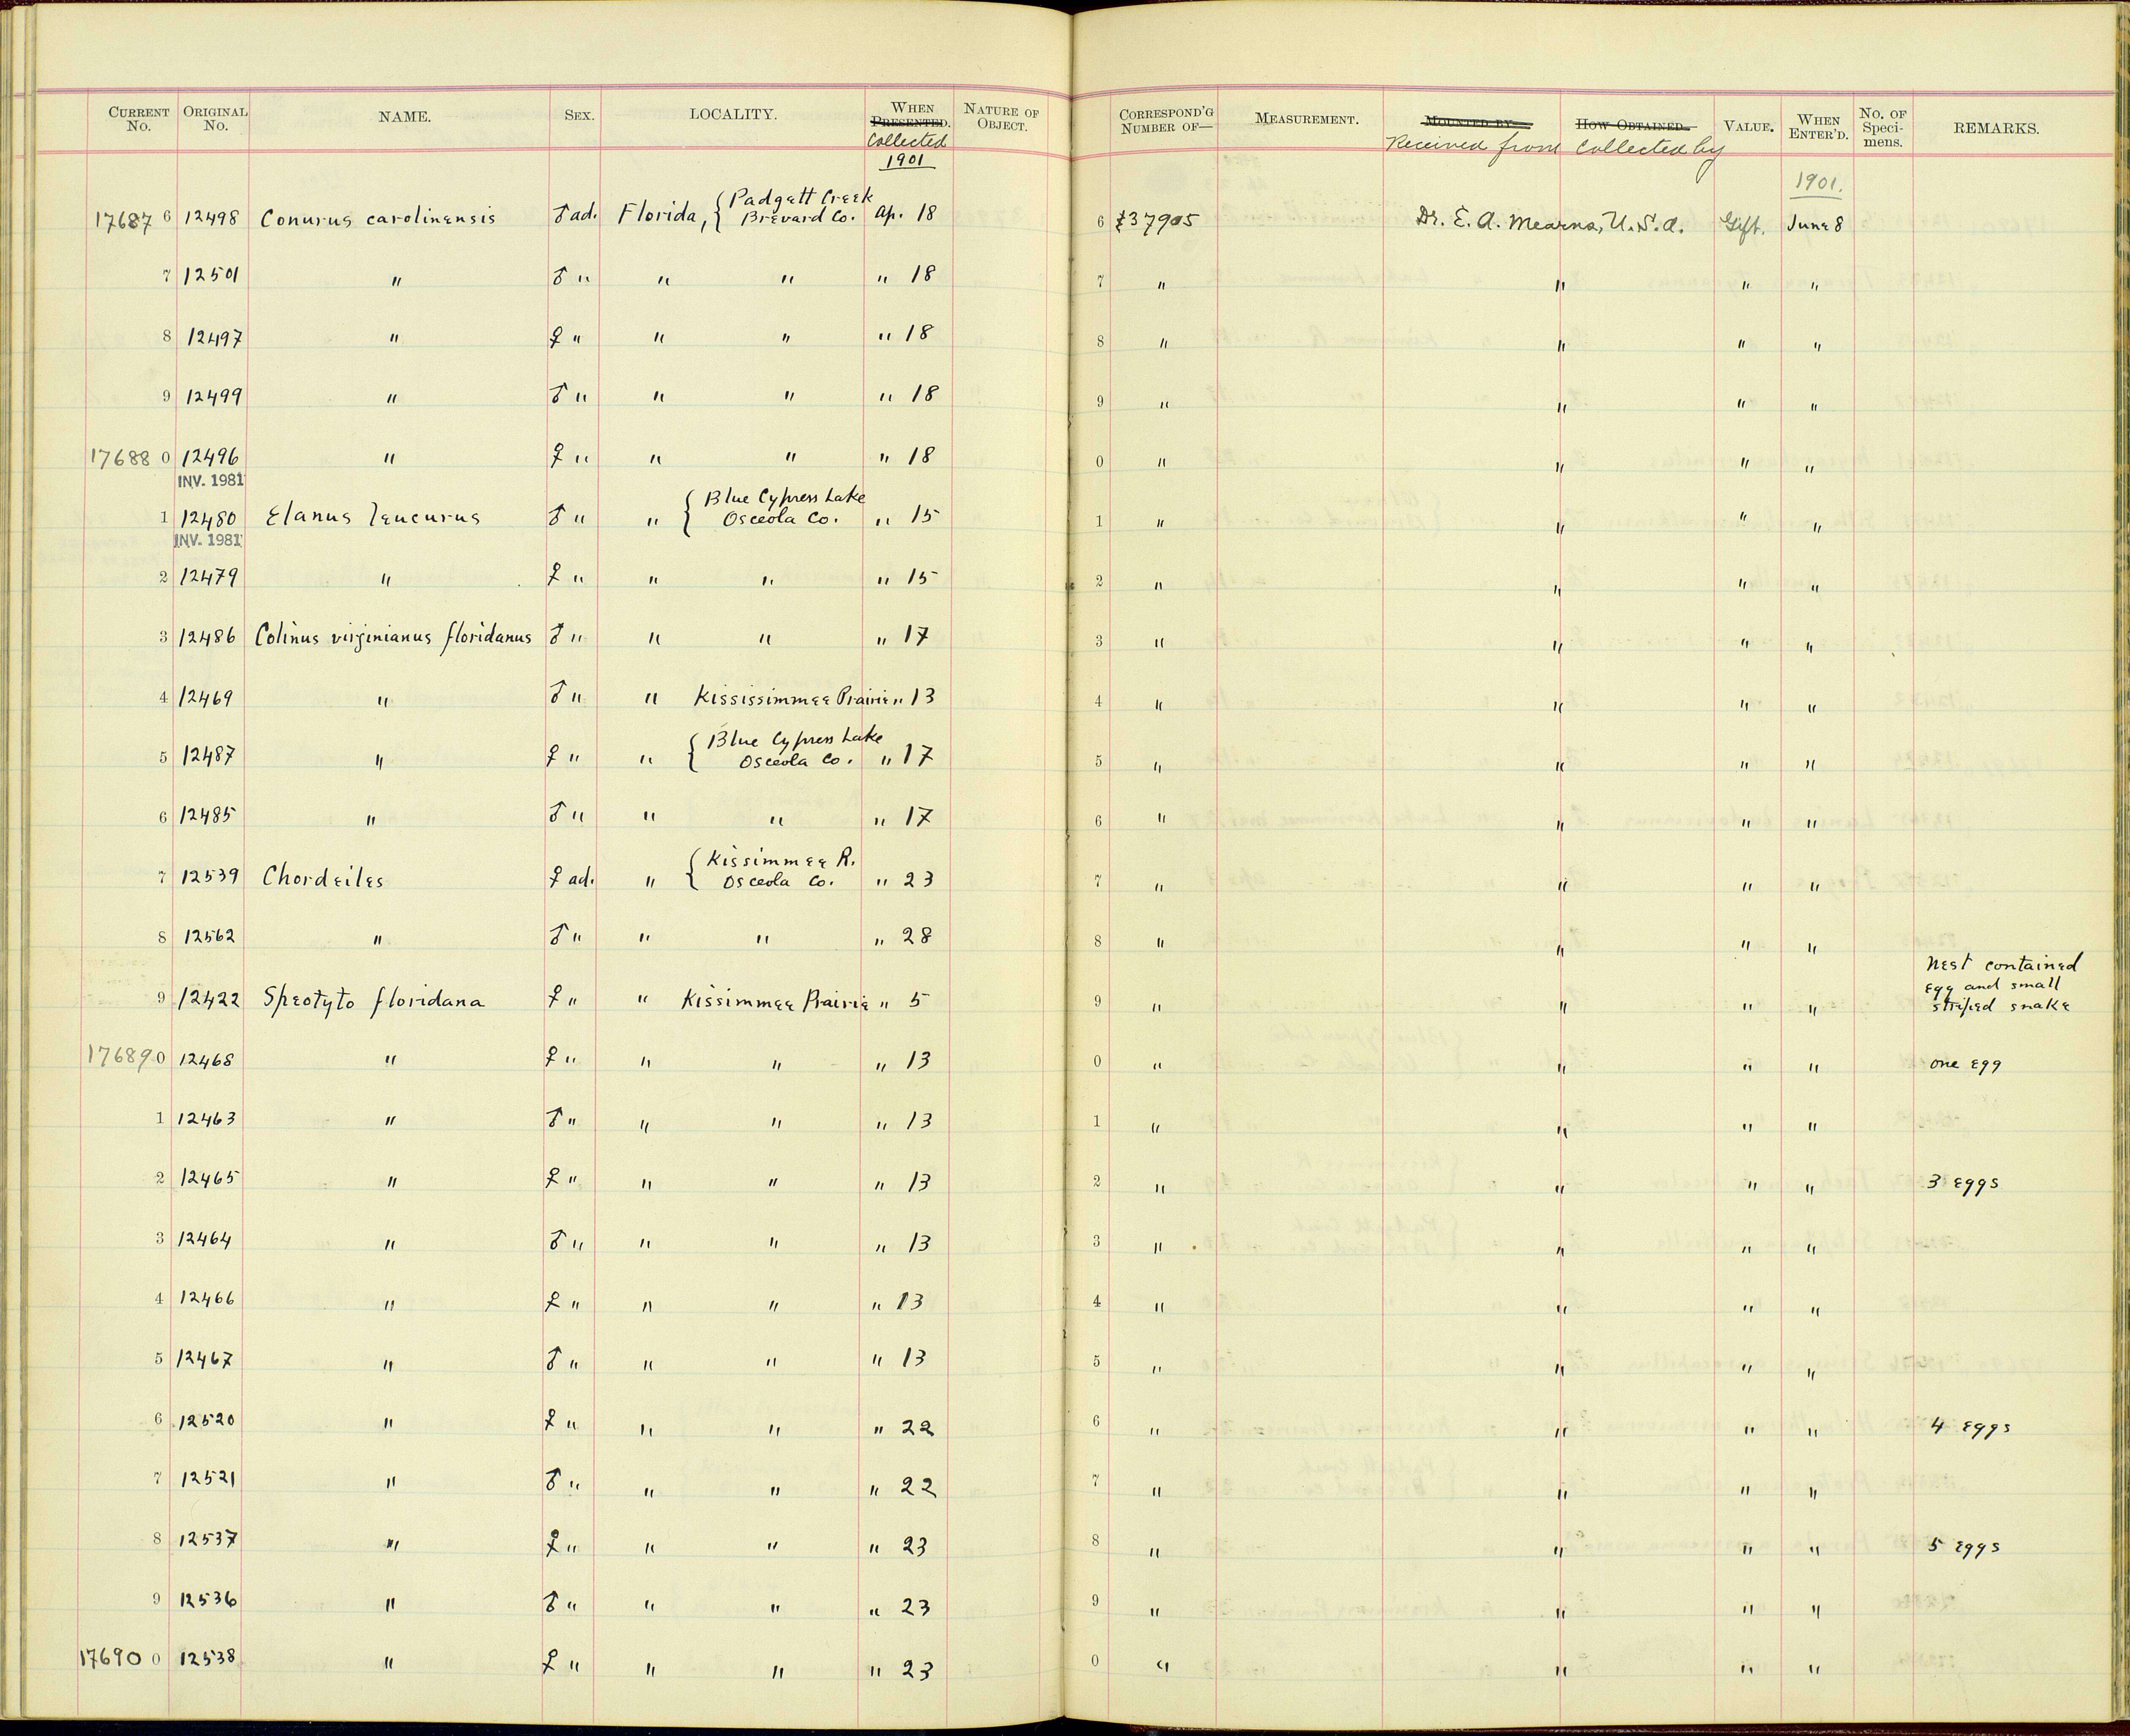 CURRENT No. ORIGINAL No. NAME. SEX. LOCALITY. WHEN PRESENTED. NATURE OF OBJECT. CORRESPOND'G NUMBER OF— MEASUREMENT. MOUNTED BY HOW OBTAINED VALUE. WHEN ENTER'D. No. OF Speci-mens. REMARKS.
Collected Received from Collected by
1901 1901.
17687 6 12498 Conurus carolinensis ♂ ad. Florida, { Padgett Creek Brevard Co. Ap. 18 6 37905 Dr. E. A. Mearns, U.S.A. Gift. June 8
7 12501 " ♂ " " " " 18 7 " " " "
8 12497 " ♀ " " " " 18 8 " " " "
9 12499 " ♂ " " " " 18 9 " " " "
17688 0 12496 " ♀ " " " " 18 0 " " " "
INV. 1981
1 12480 Elanus leucurus ♂ " " { Blue Cypress Lake Osceola Co. " 15 1 " " " "
INV. 1981
2 12479 " ♀ " " " " 15 2 " " " "
3 12486 Colinus virginianus floridanus ♂ " " " " 17 3 " " " "
4 12469 " ♂ " " Kississimmee Prairie " 13 4 " " " "
5 12487 " ♀ " " { Blue Cypress Lake Osceola Co. " 17 5 " " " "
6 12485 " ♂ " " " " 17 6 " " " "
7 12539 Chordeiles ♀ ad. " { Kissimmee R. Osceola Co. " 23 7 " " " "
8 12562 " ♂ " " " " 28 8 " " " "
9 12422 Speotyto floridana ♀ " " Kissimmee Prairie " 5 9 " " " " Nest contained egg and small striped snake
17689 0 12468 " ♀ " " " " 13 0 " " " " one egg
1 12463 " ♂ " " " " 13 1 " " " "
2 12465 " ♀ " " " " 13 2 " " " " 3 eggs
3 12464 " ♂ " " " " 13 3 " " " "
4 12466 " ♀ " " " " 13 4 " " " "
5 12467 " ♂ " " " " 13 5 " " " "
6 12520 " ♀ " " " " 22 6 " " " " 4 eggs
7 12521 " ♂ " " " " 22 7 " " " "
8 12537 " ♀ " " " " 23 8 " " " " 5 eggs
9 12536 " ♂ " " " " 23 9 " " " "
17690 0 12538 " ♀ " " " " 23 0 " " " "